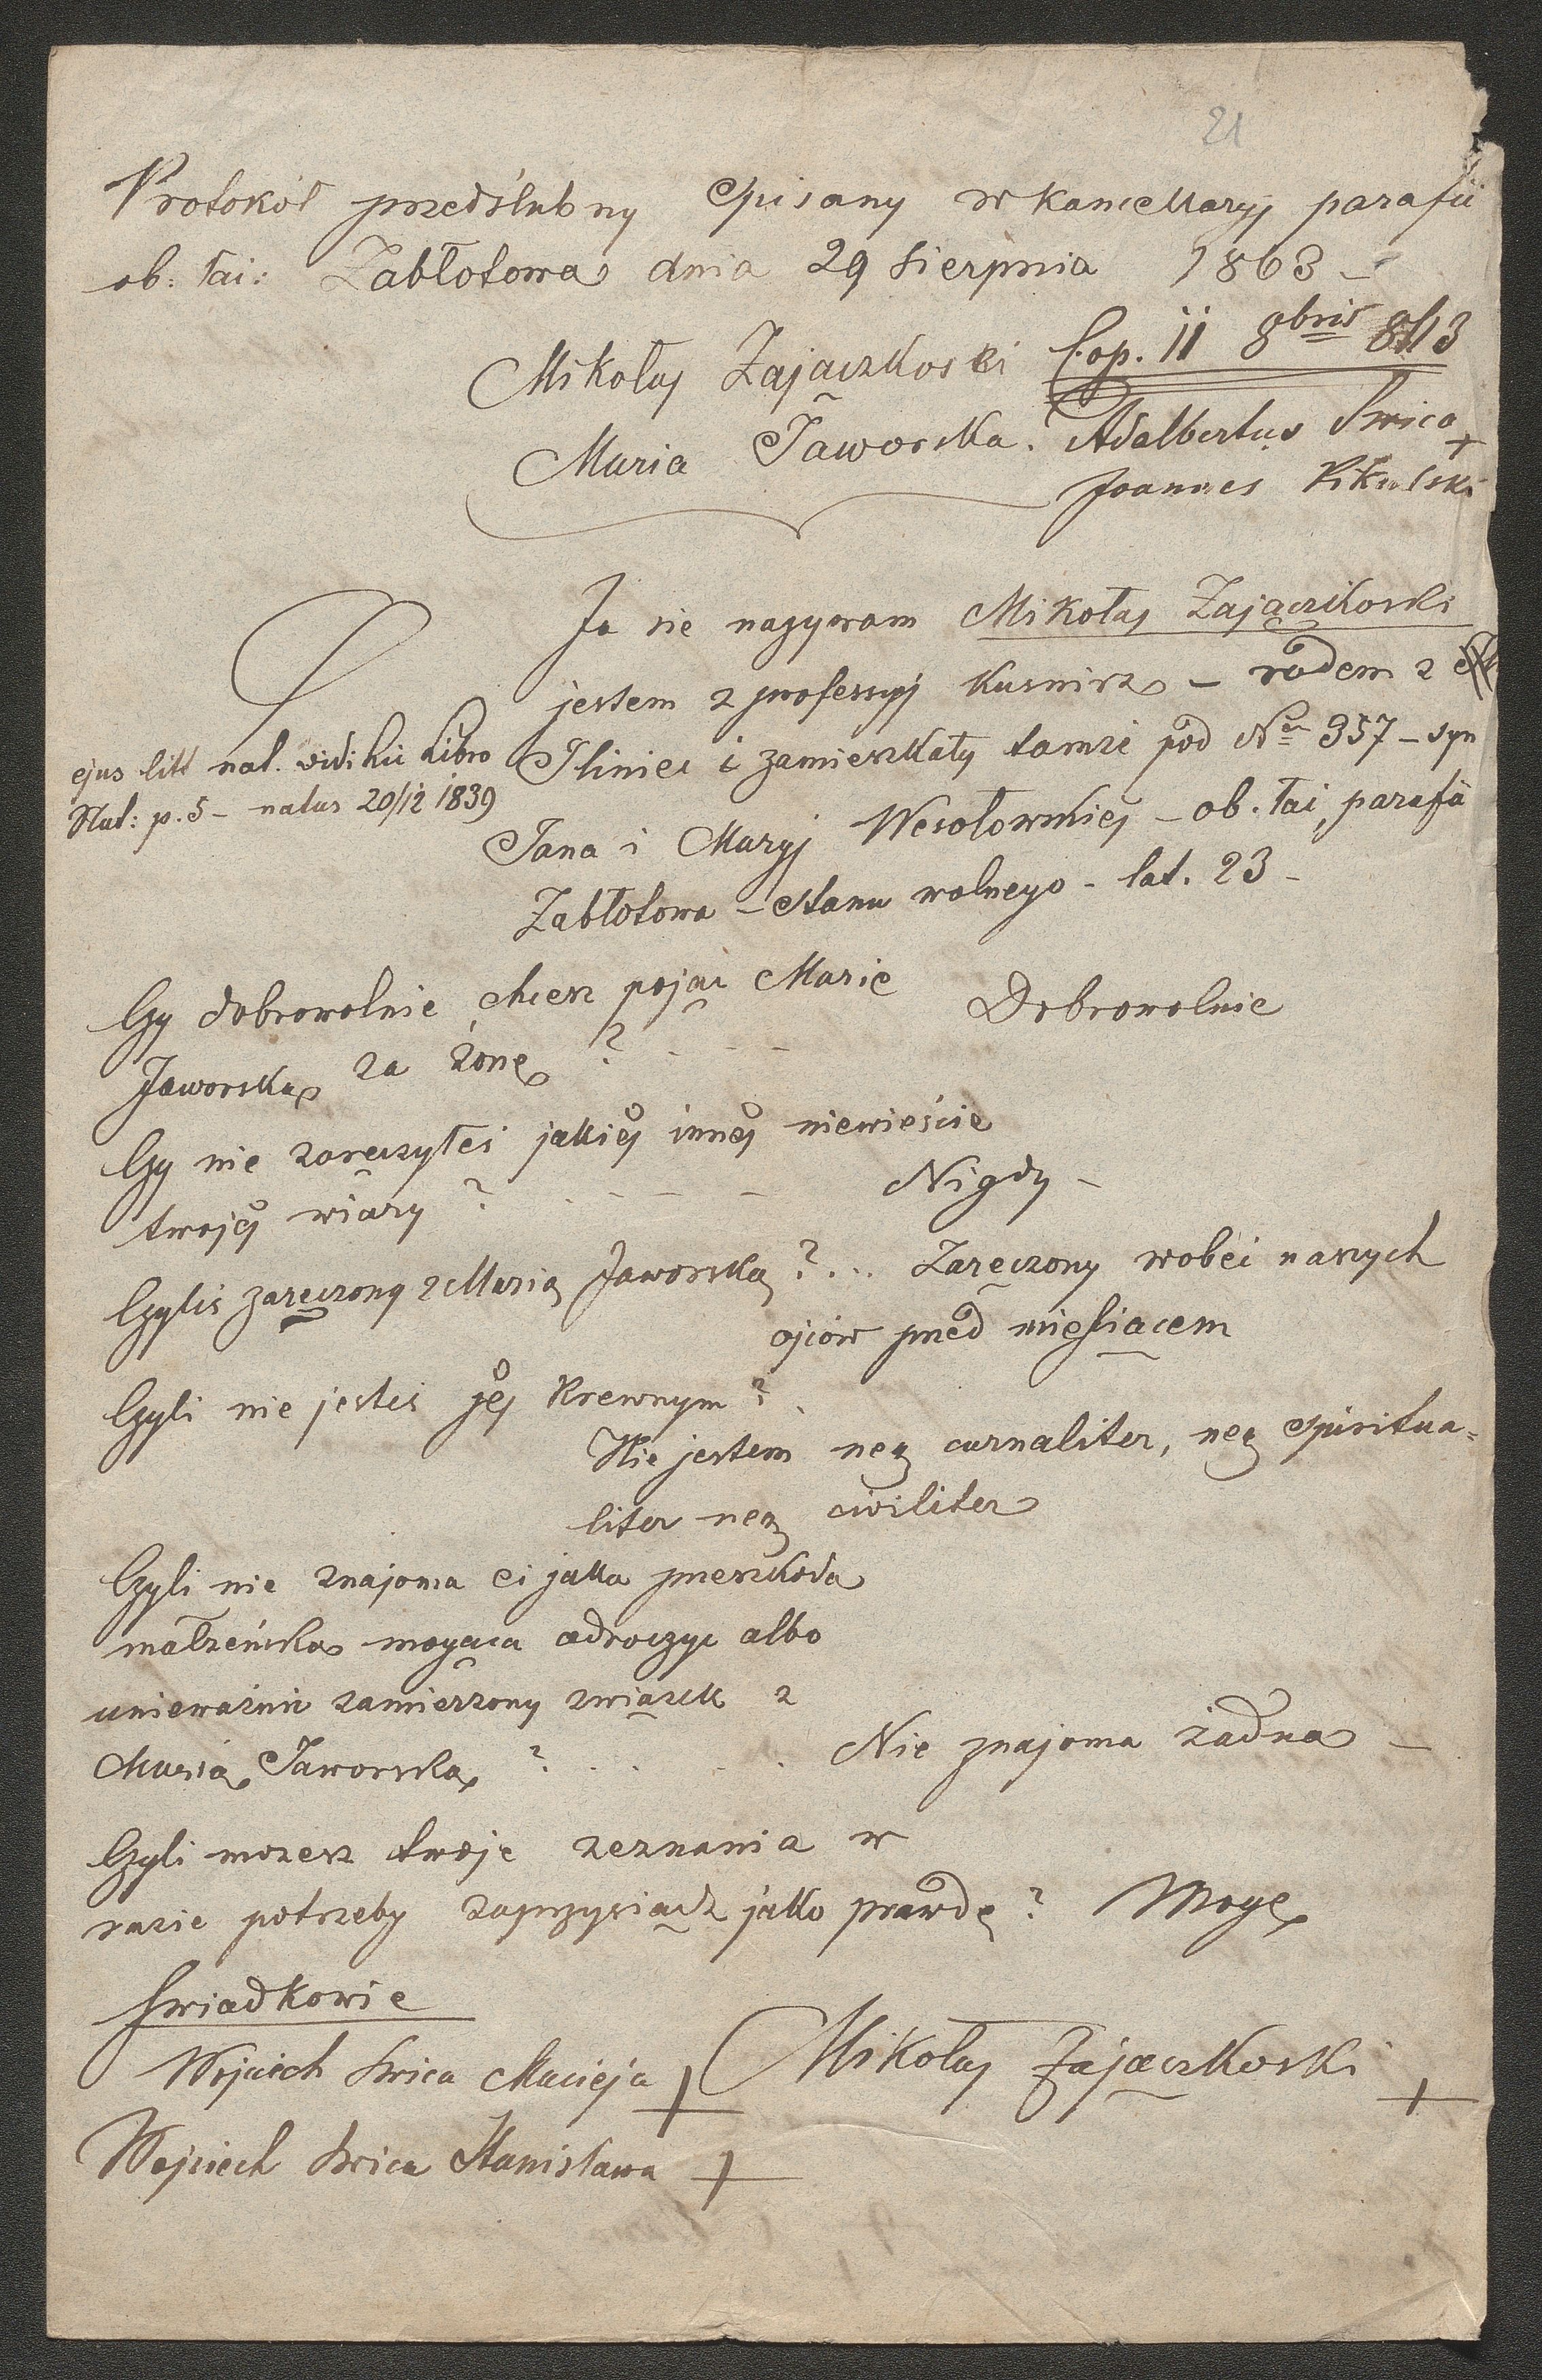 21
Protokół przedślubny spisany w kancellaryj parafii
ob: łai: Zabłotowa dnia 29 Sierpnia 1863 –
Mikołaj Zajączkoski Cop. 11 8bris 863
Maria Jaworska. Adalbertus Swica +
Joannes Pikulski
Ja sie nazywam Mikołaj Zajączkoski
jestem z professyj kusnirz – rodem z
Iliniec i zamieszkały tamże pod Nro 357 – syn
ejus litt nat. vidi hic Libro
Nat: p. 5 – natus 20/12 1839
Jana i Maryj Wesołowskiej – ob. łai, parafii
Zabłotowa – stanu wolnego – lat. 23 –
Czy dobrowolnie chcesz pojąc Marię Dobrowolnie
Jaworską za żonę ? . – – –
Czy nie zaręczyłeś jakiej innej niewieście
twojej wiary ? . – – – Nigdy –
Czyliś zaręczony z Marią Jaworską ? ... Zaręczony wobec naszych
ojców przed miesiącem
Czyli nie jesteś jej krewnym ? .
Nie jestem neq carnaliter, neq spiritua=
liter neq civiliter
Czyli nie znajoma ci jaka przeszkoda
małżeńska mogąca odroczyc albo
unieważnic zamierzony związek z
Marią Jaworską ? . . . . Nie znajoma żadna –
Czyli mozesz twoje zeznania w
razie potrzeby zaprzysiądz jako prawdę ? Mogę
Swiadkowie
Wojciech Swica Macieja + Mikołaj Zajączkoski +
Wojciech Swica Stanisława +